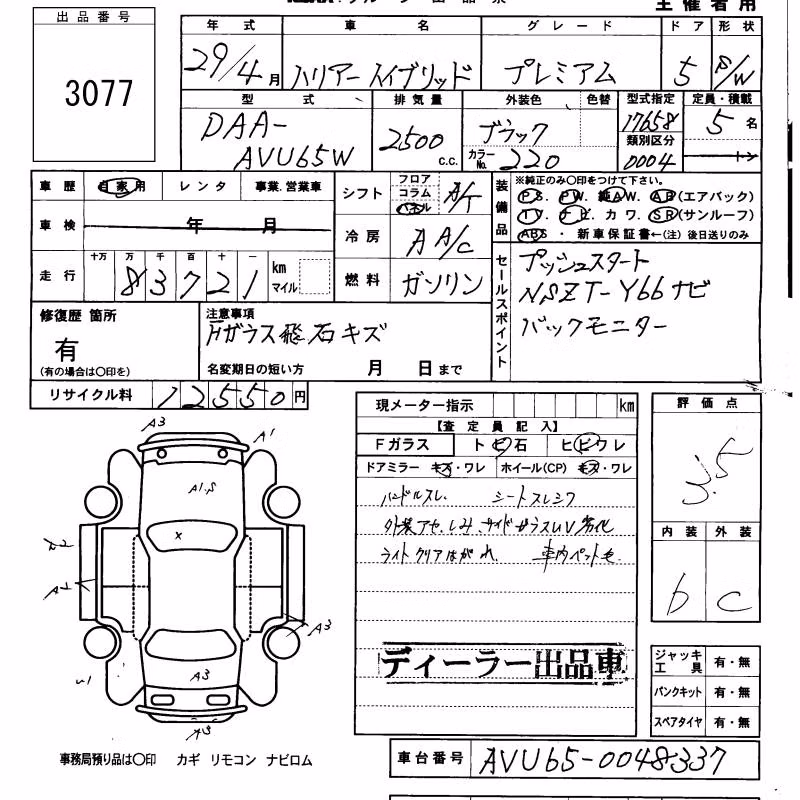 主催者用
出品番号
3077
年式 車名 グレード ドア 形状
29/4月 ハリアー ハイブリッド プレミアム 5 S/W
型式 排気量 外装色 色替 型式指定 定員・積載
DAA-AVU65W 2500 c.c. ブラック 17658 5名
カラーNo. 220 類別区分 0004 トン
車歴 自家用 レンタ 事業.営業車
車検 年 月
走行 十万 万 千 百 十 一
83721 km マイル
シフト フロア コラム パネル A/T
冷房 A A/C
燃料 ガソリン
装備品 ※純正のみ○印をつけて下さい。
PS. PW. 純AW. AB(エアバック)
TV. ナビ. カワ. SR(サンルーフ)
ABS ・ 新車保証書←(注)後日送りのみ
セールスポイント
プッシュスタート
NSZT-Y66ナビ
バックモニター
修復歴 箇所
有
(有の場合は○印を)
注意事項
Fガラス飛石キズ
名変期日の短い方 月 日まで
リサイクル料 12550円
現メーター指示 km
【査定員記入】
Fガラス トビ石 ヒビワレ
ドアミラー キズ・ワレ ホイール(CP) キズ・ワレ
ハンドルスレ. シートスレシワ
外装アセ.しみ.サイドガラスUV劣化
ライトクリアはがれ. 車内ペット毛
ディーラー出品車
評価点
3.5
内装 外装
b C
A3
A1
A1.S
X
A2
A1
A3
A3
A3
ジャッキ工具 有・無
パンクキット 有・無
スペアタイヤ 有・無
事務局預り品は○印 カギ リモコン ナビロム
車台番号 AVU65-0048337